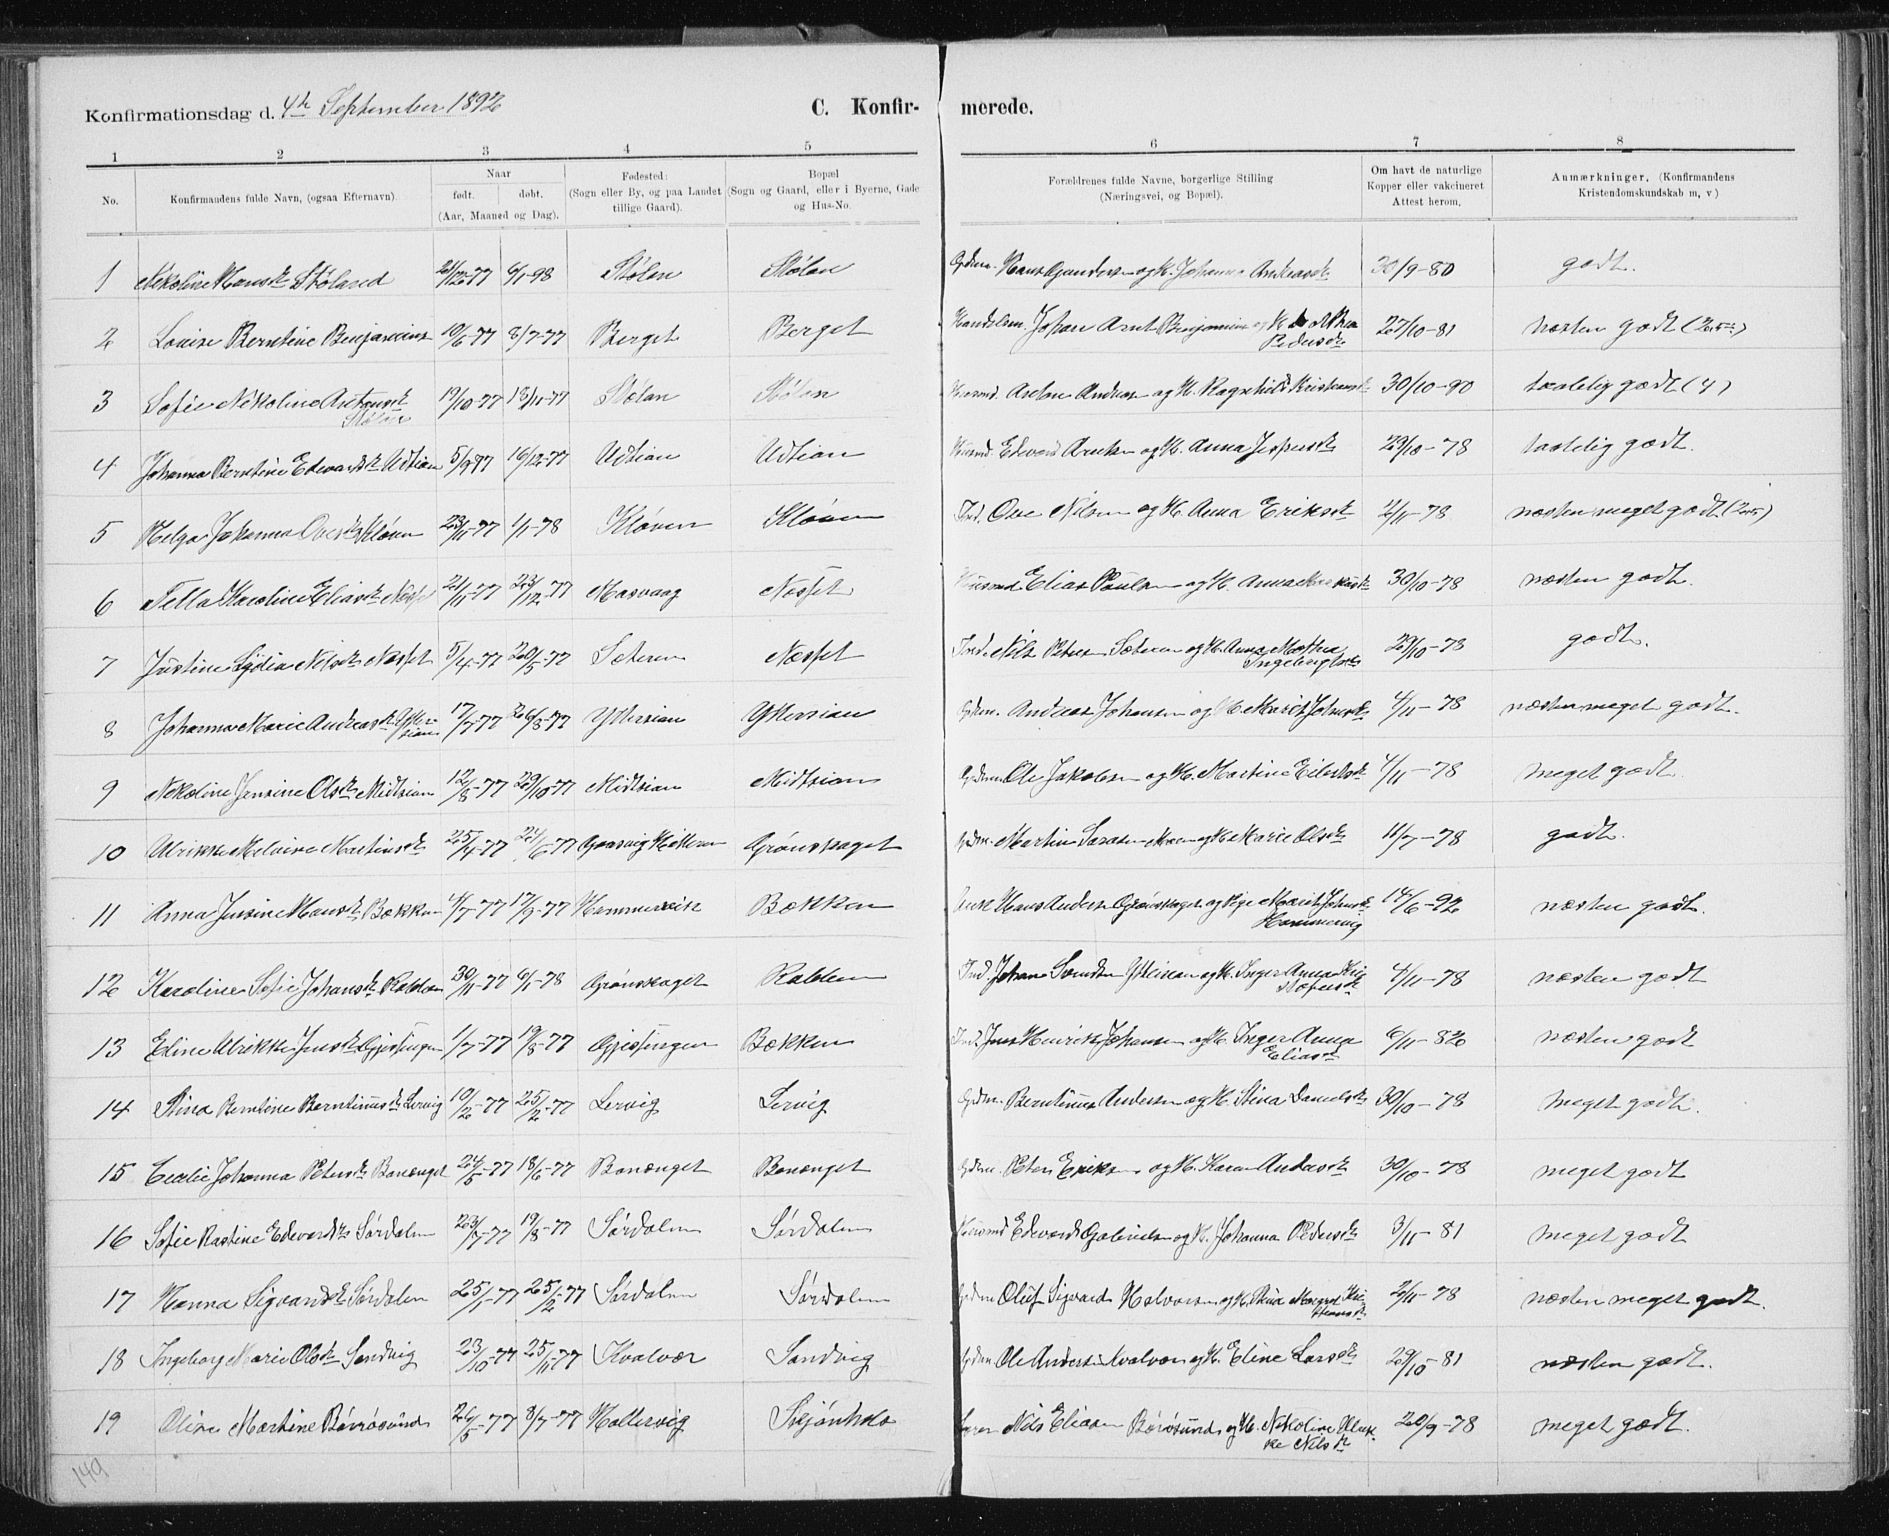 Konfirmationsdag d. 4th September 1892
C. Konfir- merede.
1 2 3 4 5 6 7 8
No. Konfirmandens fulde Navn, (ogsaa Efternavn)
Naar født. døbt. (Aar, Maaned og Dag).
Fødested: (Sogn eller By, og paa Landet tillige Gaard).
Bopæl (Sogn og Gaard, eller i Byerne, Gade og Hus-No.
Forældrenes fulde Navne, borgerlige Stilling (Næringsvei, og Bopæl).
Om havt de naturlige Kopper eller vakcineret Attest herom.
Anmærkninger. (Konfirmandens Kristendomskundskab m, v)
1 Nikoline Hansdt Støland 6/1-98 Stølan Stølan Johanna Andreasdt 30/9-80 godt.
2 Louise Berntine Benjamins 10/6-77 8/7-77 Berget Berget Handelsm. Johan Arnt Benjaminsen og H. Pedersdt 27/10-81 næsten godt
3 Sofie Nikoline Antonsdt Stølan 19/10-77 18/11-77 Stølan Stølan Husmd. Anton Andreasen og H. Ragnhild Kristiansdt 30/10-90 taalelig godt (4)
4 Johanna Berntine Edvardsdt Udtian 5/9-77 16/12-77 Udtian Udtian Husmd. Edvard Arntsen og H. Anna Jespersdt 23/10-78 taalelig godt.
5 Helga Johanna Ovesdt Kløven 23/11-77 1/1-78 Kløven Kløven Ind. Ove Nilsen og H. Anna Eriksdt 2/11-78 næsten meget godt
6 Karoline Eliasdt Næsset 21/11-77 23/12-77 Masvaag Næsset Husmd. Elias Paulsen og H. Anna 30/10-78 næsten godt.
7 Justine Lydia Nilsdt Næsset 5/4-77 20/5-77 Sæteren Næsset Ind. Nils Petersen Sæteren og H. Anna Martha Ingebrigtsdt 29/10-78 godt.
8 Johanna Marie Andreasdt Yttersian 17/7-77 26/8-77 Yttersian Yttersian Gdm. Andreas Johansen og H. Marit Johnsdt 4/11-78 næsten meget godt.
9 Nikoline Jensine Olsdt Midtsian 12/8-77 29/10-77 Midtsian Midtsian Gdm. Ole Jakobsen og H. Martine Eilertsdt 4/11-78 meget godt.
10 Ulrikke Melvine Martinsdt 25/4-77 24/6-77 Grønskaget Gdm. Martin og H. Marie Olsdt 11/7-78 godt.
11 Anna Jensine Hansdt Bækken 4/7-77 17/9-77 Hammervik Bækken Hans Andersen Grønskaget og Pige Marit Johnsdt Hammervig 14/6-92 næsten godt.
12 Karoline Sofie Johansdt Rabben 30/11-77 6/1-78 Grønskaget Rabben Ind. Johan Svendsen Yttersian og H. Inger Anna Kristofersdt 4/11-78 næsten godt
13 Eline Ulrikke Jensdt Gjessingen 1/7-77 19/8-77 Gjessingen Bækken Ind. Jens Henrik Johansen og H. Inger Anna Eliasdt 6/11-82 næsten godt
14 Stina Berntine Berntinusdt Lervig 10/2-77 25/2-77 Lervig Lervig Gdm. Berntinus Andersen og H. Stina Danielsdt 30/10-78 meget godt.
15 Cecilie Johanna Petersdt Bonænget 24/5-77 18/6-77 Bonænget Bonænget Gdm. Peter Eriksen og H. Karen Andersdt 30/10-78 meget godt
16 Sofie Kastine Edvardsdt Sørdalen 23/7-77 19/8-77 Sørdalen Sørdalen Husmd Edvard Gabrielsen og H. Johanna Pedersdt 3/11-81 meget godt
17 Hanna Sigvardsdt Sørdalen 25/1-77 25/2-77 Sørdalen Sørdalen Gdm Oluf Sigvard Halvorsen og H. Stina Margret Kristiansdt 2/11-78 næsten meget godt.
18 Ingeborg Marie Olsdt Sandvig 23/10-77 25/11-77 Kvalvær Sandvig Gdm Ole Andersen Kvalvær og H. Eline Larsdt 29/10-81 næsten godt.
19 Oline Martine Børøsund 26/5-77 8/7-77 Hattervig Lærer Nils Eliasen Børøsund og H. Nikoline Ulrikke Nilsdt 20/9-78 meget godt.
149